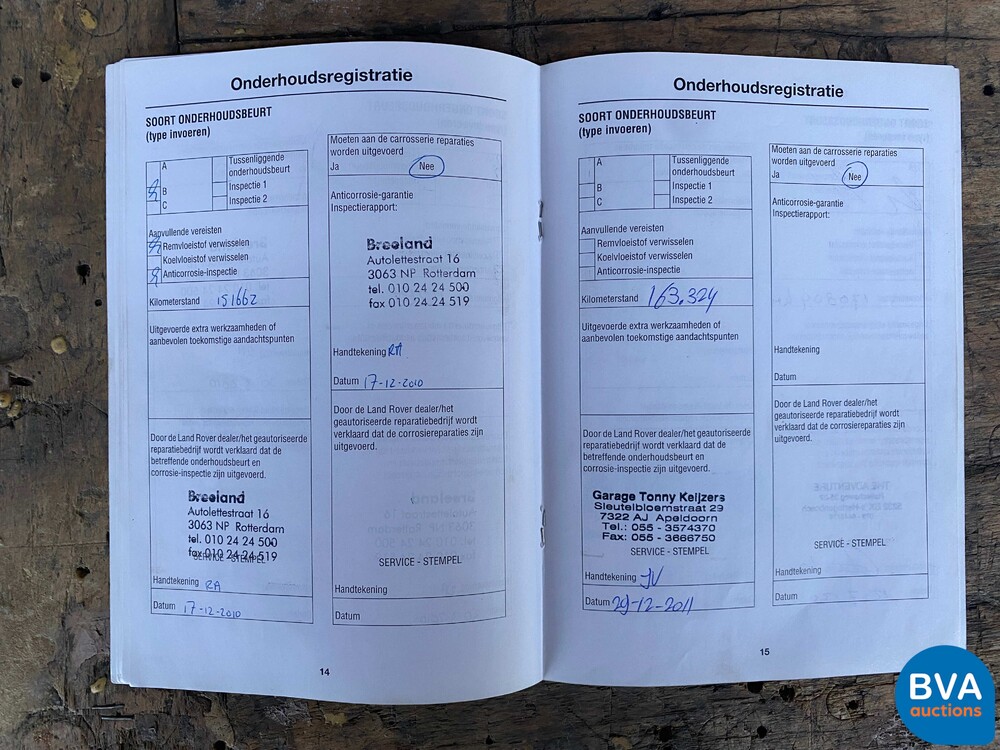 Onderhoudsregistratie
SOORT ONDERHOUDSBEURT
(type invoeren)
A
B
C
Tussenliggende
onderhoudsbeurt
Inspectie 1
Inspectie 2
Aanvullende vereisten
Remvloeistof verwisselen
Koelvloeistof verwisselen
Anticorrosie-inspectie
Kilometerstand 151662
Uitgevoerde extra werkzaamheden of
aanbevolen toekomstige aandachtspunten
Door de Land Rover dealer/het geautoriseerde
reparatiebedrijf wordt verklaard dat de
betreffende onderhoudsbeurt en
corrosie-inspectie zijn uitgevoerd.
Breeland
Autolettestraat 16
3063 NP Rotterdam
tel. 010 24 24 500
fax 010 24 24 519
SERVICE - STEMPEL
Handtekening RA
Datum 17-12-2010
Moeten aan de carrosserie reparaties
worden uitgevoerd
Ja Nee
Anticorrosie-garantie
Inspectierapport:
Breeland
Autolettestraat 16
3063 NP Rotterdam
tel. 010 24 24 500
fax 010 24 24 519
Handtekening RA
Datum 17-12-2010
Door de Land Rover dealer/het
geautoriseerde reparatiebedrijf wordt
verklaard dat de corrosiereparaties zijn
uitgevoerd.
SERVICE - STEMPEL
Handtekening
Datum
14
Onderhoudsregistratie
SOORT ONDERHOUDSBEURT
(type invoeren)
A
B
C
Tussenliggende
onderhoudsbeurt
Inspectie 1
Inspectie 2
Aanvullende vereisten
Remvloeistof verwisselen
Koelvloeistof verwisselen
Anticorrosie-inspectie
Kilometerstand 163.324
Uitgevoerde extra werkzaamheden of
aanbevolen toekomstige aandachtspunten
Door de Land Rover dealer/het geautoriseerde
reparatiebedrijf wordt verklaard dat de
betreffende onderhoudsbeurt en
corrosie-inspectie zijn uitgevoerd.
Garage Tonny Keijzers
Sleutelbloemstraat 29
7322 AJ Apeldoorn
Tel.: 055 - 3574370
Fax: 055 - 3666750
SERVICE - STEMPEL
Handtekening JV
Datum 29-12-2011
Moeten aan de carrosserie reparaties
worden uitgevoerd
Ja Nee
Anticorrosie-garantie
Inspectierapport:
Handtekening
Datum
Door de Land Rover dealer/het
geautoriseerde reparatiebedrijf wordt
verklaard dat de corrosiereparaties zijn
uitgevoerd.
SERVICE - STEMPEL
Handtekening
Datum
15
BVA
auctions